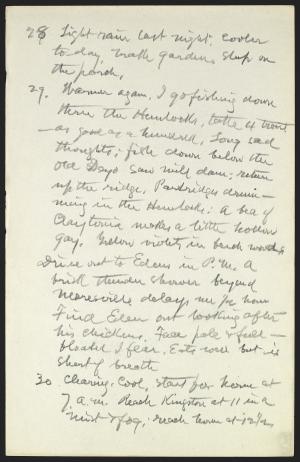 28 Light rain last night. Cooler
to-day, walk gardens sleep on
the porch.
29. Warmer again, I go fishing down
there the Hemlocks, take 12 trout
— as good as a hundred, Long sad
thoughts; fish down below the
old Days saw mill dam; return
up the ridge, Partridges drum-
ming in the Hemlocks: A bed of
Claytonia makes a little hollow
gay. Yellow violets in beech woods
Drive out to Edens in P.M. A
brisk thunder shower beyond
Moresville delays me ½ hour
Find Eden out looking after
his chickens. Face pale & full —
bloated I fear. Eats well but is
short of breath
30. Clearing, Cool, start for home at
7 a.m. Reach Kingston at 11 in a
mist & fog, reach home at 12½